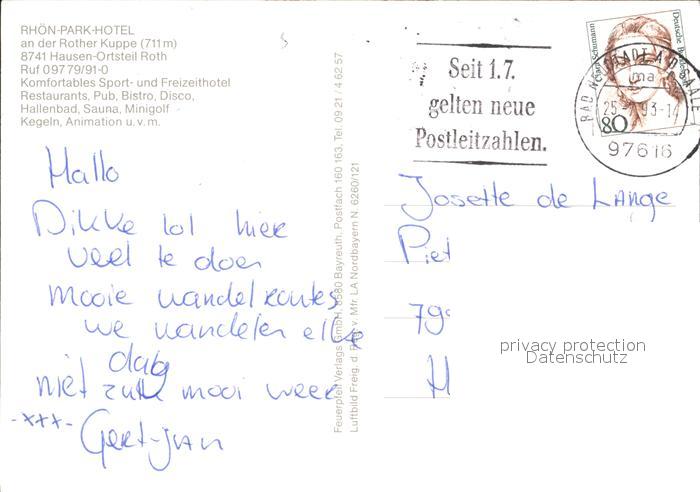 RHÖN-PARK-HOTEL
an der Rother Kuppe (711 m)
8741 Hausen-Ortsteil Roth
Ruf 09779/91-0
Komfortables Sport- und Freizeithotel
Restaurants, Pub, Bistro, Disco,
Hallenbad, Sauna, Minigolf
Kegeln, Animation u.v.m.
Hallo
Dikke lol hier
veel te doen
mooie wandelroutes
we wandelen elke
dag
niet zulk mooi weer
-xxx- Gert-Jan
Feuerpfeil Verlags GmbH, 8580 Bayreuth, Postfach 160 163, Tel. 09 21 / 4 62 57
Luftbild Freig. d. Reg. v. Mfr. LA Nordbayern N. 6260/121
Seit 1.7.
gelten neue
Postleitzahlen.
Clara Schumann
Deutsche Bundespost
80
BAD NEUSTADT A D SAALE 1
ma
97616
Josette de Lange
Piet
79
H
privacy protection
Datenschutz